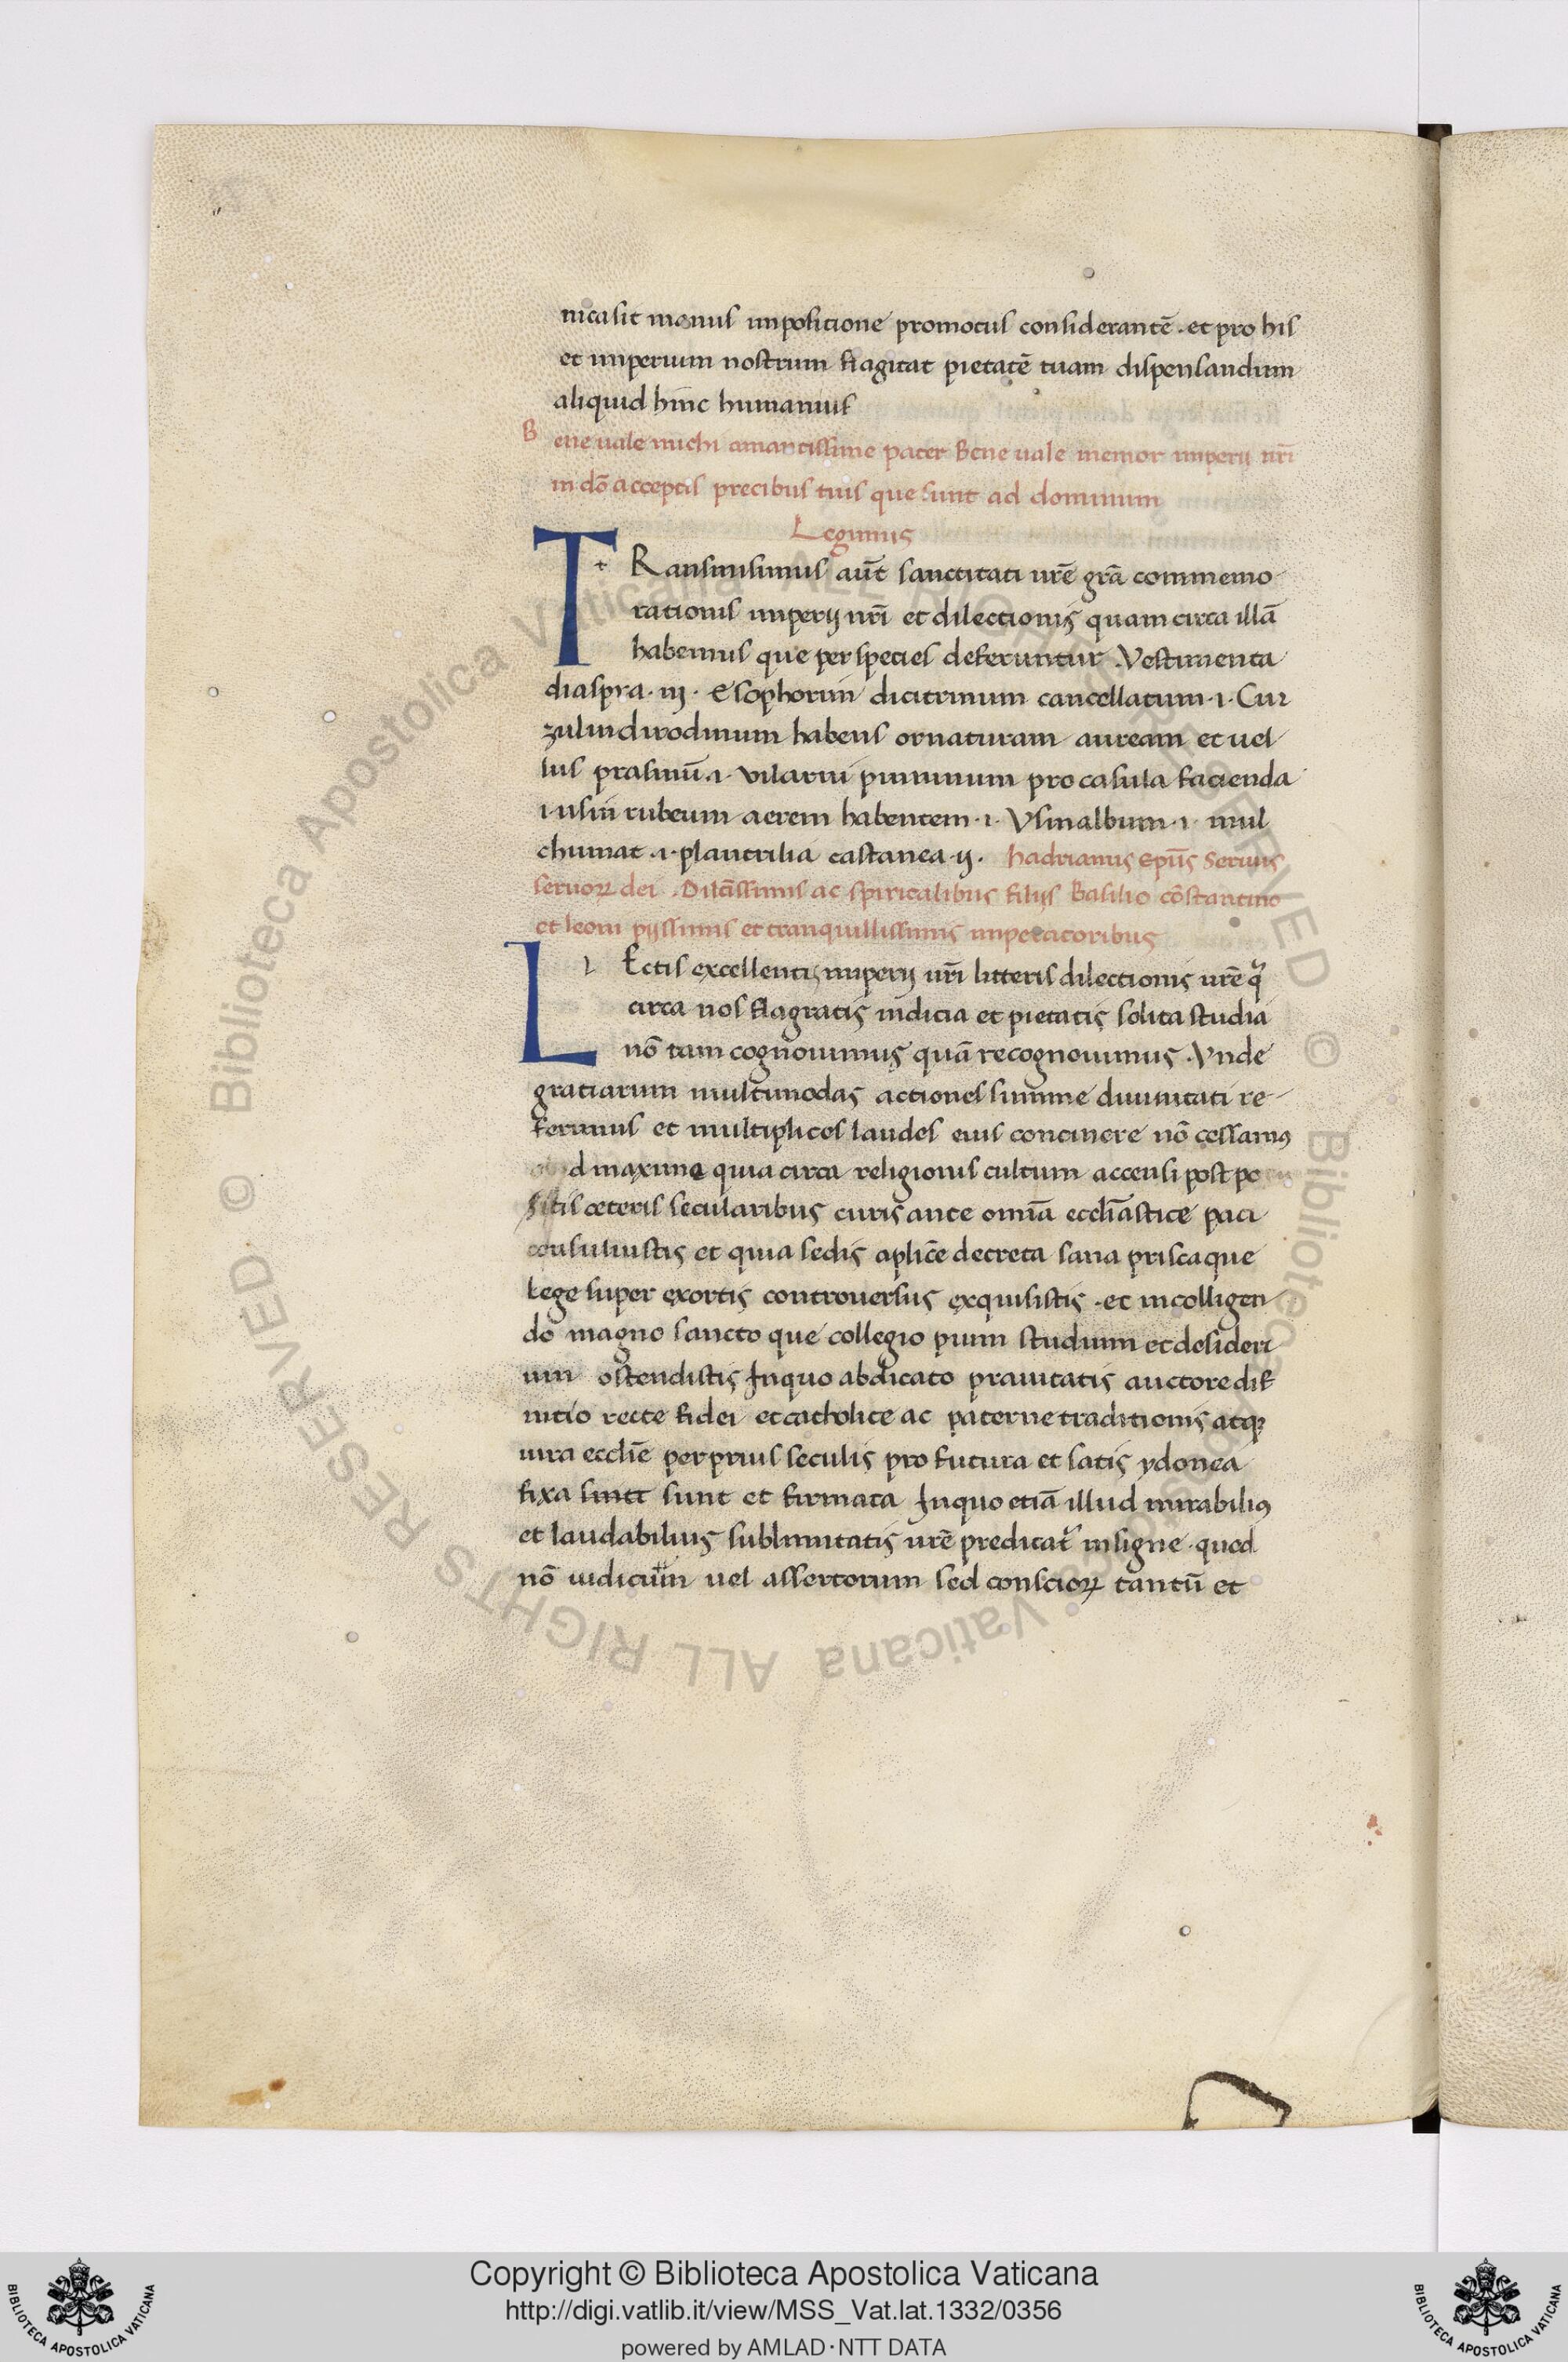 nicasit manus impositione promotus considerantē . et pro his
et imperium nostrum flagitat pietatē tuam dispensandum
aliquid hinc humanius
Bene uale michi amantissime pater Bene uale memor imperij nr̄i
in dō acceptis precibus tuis que sunt ad dominum
Legimus
TRansmisimus aūt sanctitati urē grā commemo
rationis imperij nr̄i et dilectionis quam circa illā
habemus que per species deferuntur . Vestimenta
diaspra . iij . Esophorim dicitrinum cancellatum . i . Cur
zulindirodinum habens ornaturam auream et uel
lus prasinū . i . Vilariu pinninum pro casula facienda
i . usin rubeum aerem habentem . i . Vsinalbum . i . mul
chumat . i . plantilia castanea . ij . hadrianus Ep̄us Seruus
seruoꝝ dei . Dilc̄issimis ac spiritalibus filijs Basilio cōstantino
et leoni pijssimis et tranquillissimis imperatoribus
LEctis excellentis imperij ur̄i litteris dilectionis urē q
circa nos flagratis indicia et pietatis solita studia
nō tam cognouimus quā recognouimus . Vnde
gratiarum multimodas actiones summe diuinitati re-
ferimus et multiplices laudes eius concinere nō cessamus
d maxime quia circa religionis cultum accensi post po
sitis ceteris secularibus curis ante omīa eccl̄iastice paci
consuluistis et quia sedis aplicē decreta sana priscaque
lege super exortis controuersiis exquisistis . et in colligen
do magno sancto que collegio pium studium et desideri
um ostendistis Inquo abdicato prauitatis auctore dif
initio recte fidei et catholice ac paterne traditionis atqꝫ
iura eccliē perprius seculis pro futura et satis ydonea
fixa sinct sunt et firmata Inquo etiā illud mirabilius
et laudabilius sublimitatis urē predicat insigne . quod
nō iudicium uel assertorum sed conscioꝝ tantū et
Copyright © Biblioteca Apostolica Vaticana
http://digi.vatlib.it/view/MSS_Vat.lat.1332/0356
powered by AMLAD·NTT DATA
BIBLIOTECA APOSTOLICA VATICANA
BIBLIOTECA APOSTOLICA VATICANA
© Biblioteca Apostolica Vaticana ALL RIGHTS RESERVED © Biblioteca Apostolica Vaticana ALL RIGHTS RESERVED